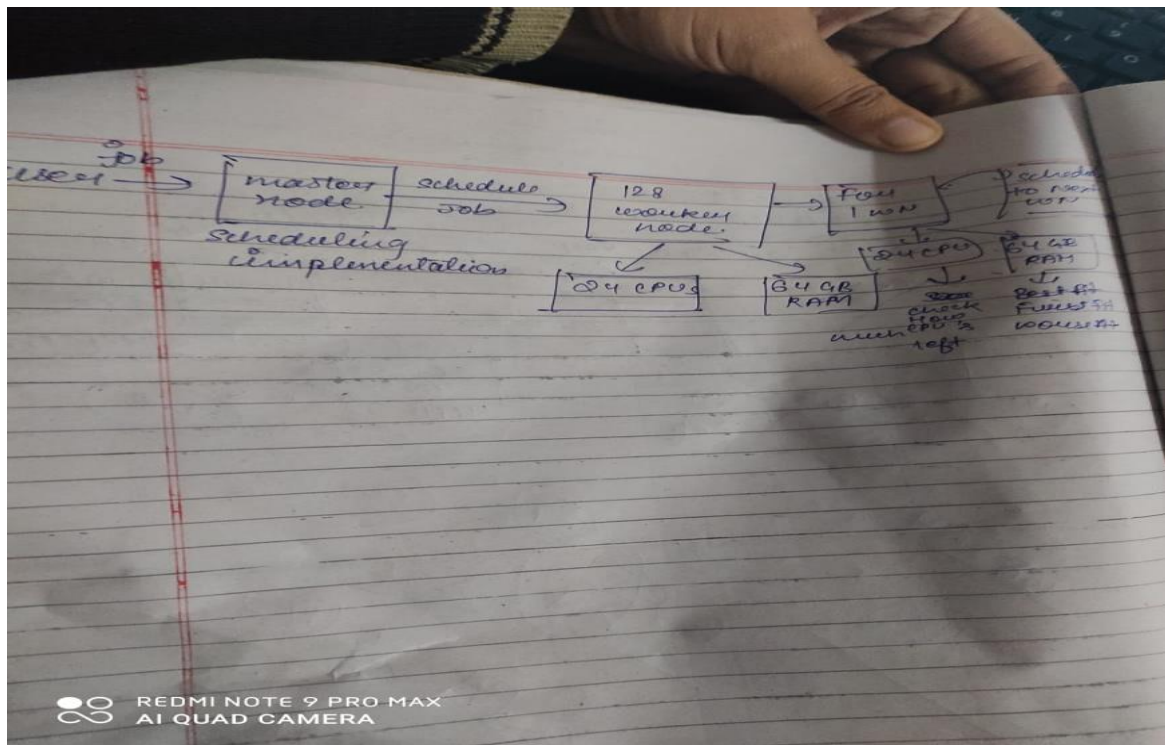 job
user
master
node
Scheduling
implementation
schedule
job
128
worker
node
24 CPUs
64 GB
RAM
For
1 WN
schedul
to next
WN
24 CPU
64 GB
RAM
check
How
much CPU's
left
Best fit
First fit
worse fit
REDMI NOTE 9 PRO MAX
AI QUAD CAMERA